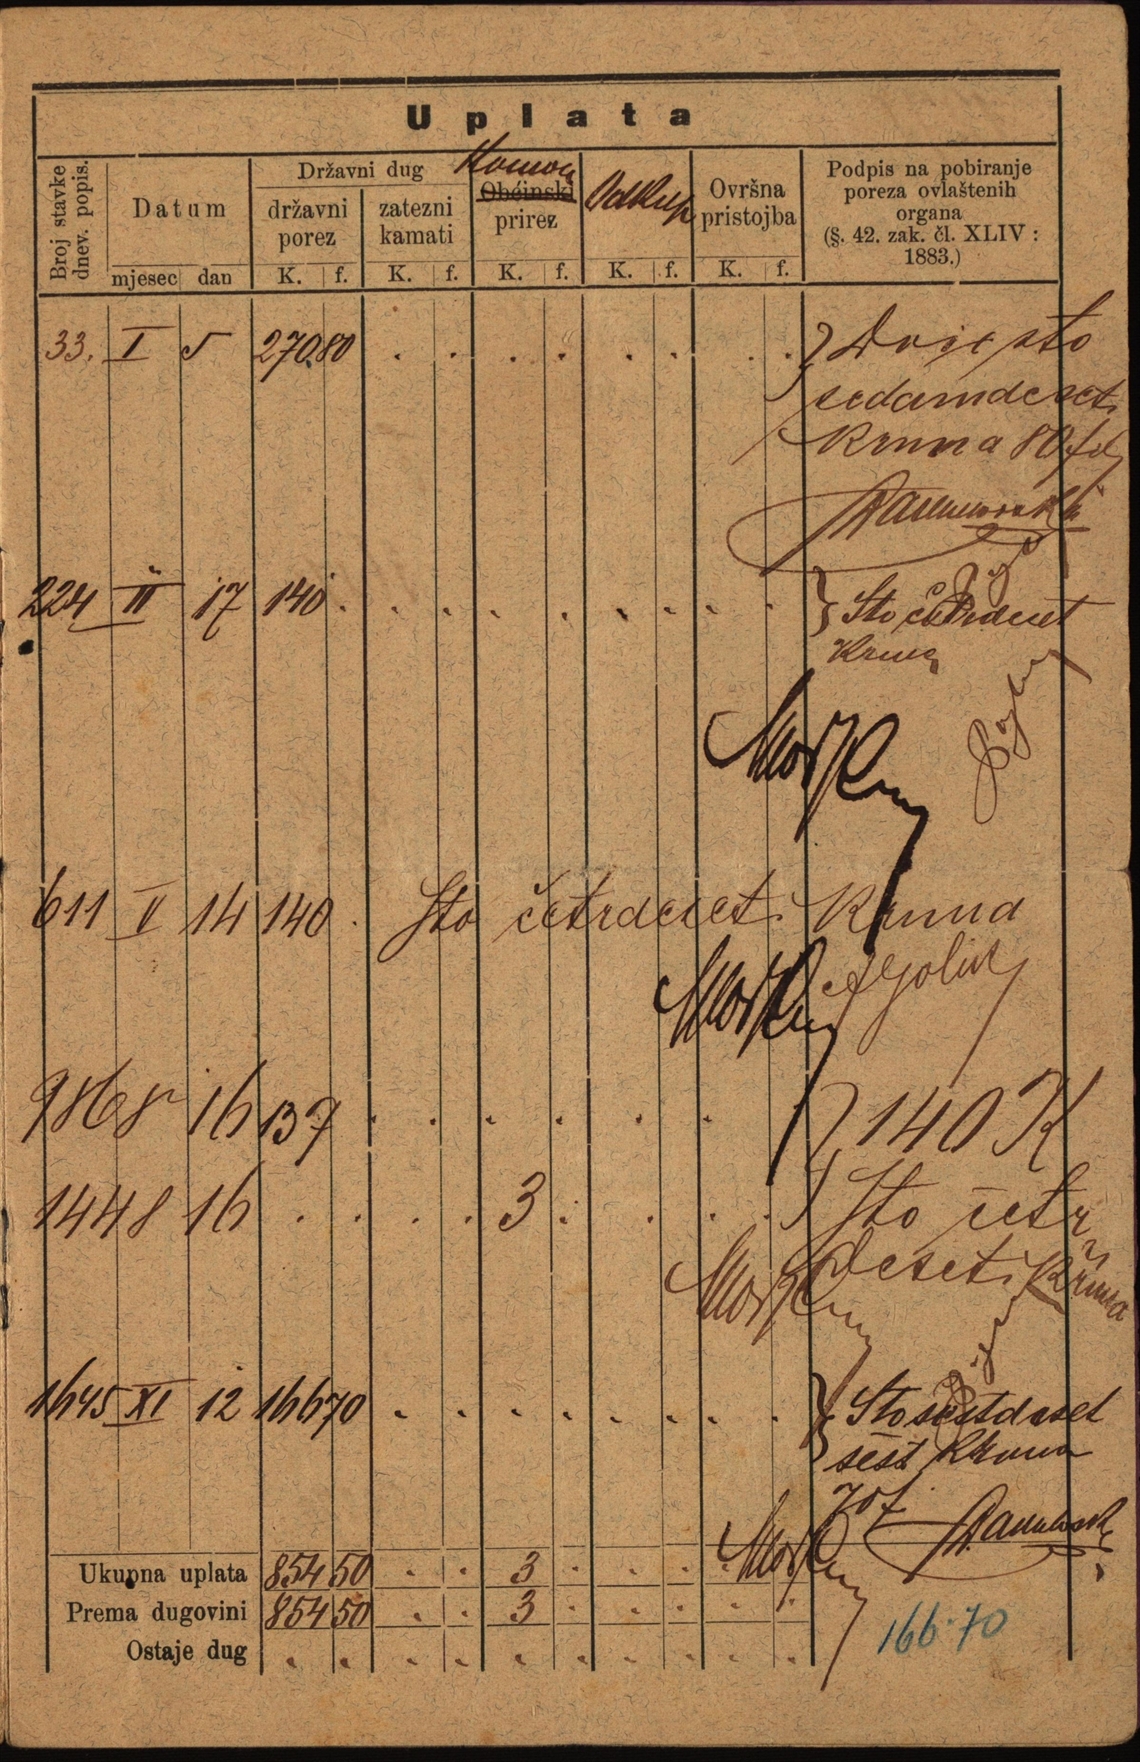 Uplata
Broj stavke
dnev. popis.
Datum
mjesec dan
Državni dug
državni
porez
zatezni
kamati
Obćinski
prirez
Odkup
Ovršna
pristojba
Podpis na pobiranje
poreza ovlaštenih
organa
(§. 42. zak. čl. XLIV :
1883.)
K. f. K. f. K. f. K. f. K. f.
33. I 5 270 80 . . . . . . . . } Dvije sto
sedamdeset
kruna 80 fil
224 II 17 140 . . . . . . . . . } Sto četrdeset
Kruna
611 V 14 140 . Sto četrdeset Kruna
986 8 16 137 . . . . . . } 140 K
1448 16 . . . . 3 . . . . Sto četr
deset Kruna
1645 XI 12 166 70 . . . . . . . . } Sto šestdeset
šest Kruna
70 f
Ukupna uplata 854 50 . . 3 . . . .
Prema dugovini 854 50 . . 3 . . . . .
Ostaje dug . . . . . . . . . .
166·70